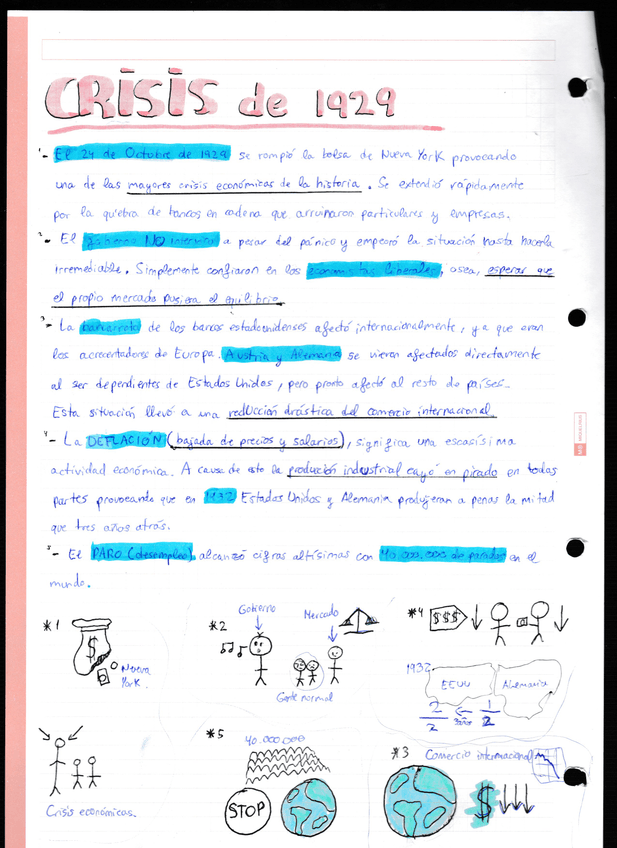 CRISIS de 1929
1- El 24 de Octubre de 1929 se rompió la bolsa de Nueva York provocando
una de las mayores crisis económicas de la historia. Se extendió rápidamente
por la quiebra de bancos en cadena que arruinaron particulares y empresas.
2- El gobierno NO intervino a pesar del pánico y empeoró la situación hasta hacerla
irremediable. Simplemente confiaron en los economistas liberales, osea, esperar que
el propio mercado pusiera el equilibrio.
3- La bancarrota de los barcos estadounidenses afectó internacionalmente, ya que eran
los acrecentadores de Europa. Austria y Alemania se vieron afectados directamente
al ser dependientes de Estados Unidos, pero pronto afectó al resto de países.
Esta situación llevó a una redución drástica del comercio internacional
4- La DEFLACIÓN (bajada de precios y salarios), significa una escasísima
actividad económica. A causa de esto la produción industrial cayó en picado en todas
partes provocando que en 1932 Estados Unidos y Alemania produjeran a penas la mitad
que tres años atrás.
5- El PARO (desempleo) alcanzó cifras altísimas con 40.000.000 de parados en el
mundo.
*1
$
Nueva
York.
*2
Gobierno
Mercado
Gente normal
*4
$$$
1932
EEUU
Alemania
2/2 ← 3años 1/2
Crisis económicas.
*5
40.000.000
STOP
*3
Comercio internacional
$